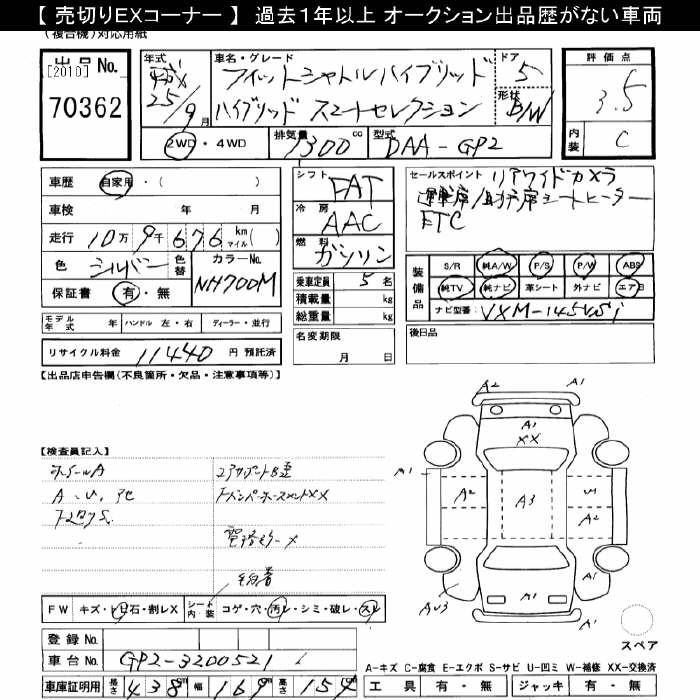 【 売切りEXコーナー 】 過去1年以上 オークション出品歴がない車両
(複合機)対応用紙
出品No.
[2010]
70362
年式
25/9月
車名・グレード
フィットシャトルハイブリッド
ハイブリッド スマートセレクション
ドア
5
形状
B/W
評価点
3.5
内装
C
2WD・4WD
排気量
1300 cc
型式
DAA-GP2
車歴 自家用・( )
車検 年 月
走行 10万 9千 676 km マイル( )
色 シルバー 色替
カラーNo.
NH700M
保証書 有・無
シフト
FAT
冷房
AAC
燃料
ガソリン
乗車定員 5 名
積載量 kg
総重量 kg
名変期限
月 日
セールスポイント リアワイドカメラ
運転席/助手席シートヒーター
ETC
装備品
S/R 純A/W P/S P/W ABS
純TV 純ナビ 革シート 外ナビ エアB
ナビ型番: VXM-145VSi
後日品
モデル年式 年 ハンドル 左・右 ディーラー・並行
リサイクル料金 11440 円 預託済
【出品店申告欄(不良箇所・欠品・注意事項等)】
【検査員記入】
ホイールA
A・U
コアサポートB
XX
A2 A1
A1
XX
A1
A2
A3
A2
A1
A1
A1
スペア
FW キズ・トビ石・割レX シート内・装 コゲ・穴・汚レ・シミ・破レ・スレ
登録No.
車台No. GP2-3200521
車庫証明用 長さ 438 幅 169 高さ 154
A-キズ C-腐食 E-エクボ S-サビ U-凹ミ W-補修 XX-交換済
工具 有・無 ジャッキ 有・無